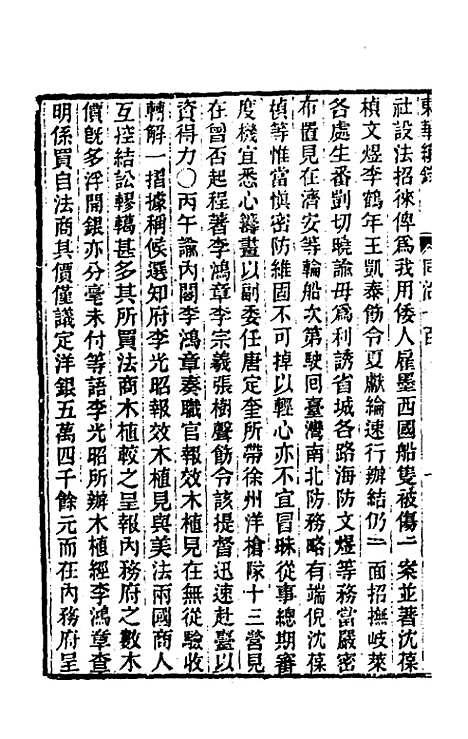 東華續錄 同治一百
社設法招徠俾爲我用倭人雇墨西國船隻被傷一案並著沈葆
楨文煜李鶴年王凱泰飭令夏獻綸速行辦結仍一面招撫岐萊
各處生番剴切曉諭毋爲利誘省城各路海防文煜等務當嚴密
布置見在濟安等輪船次第駛囘臺灣南北防務略有端倪沈葆
楨等惟當愼密防維固不可掉以輕心亦不宜冒昧從事總期審
度機宜悉心籌畫以副委任唐定奎所帶徐州洋槍隊十三營見
在曾否起程著李鴻章李宗羲張樹聲飭令該提督迅速赴臺以
資得力〇丙午諭內閣李鴻章奏職官報效木植見在無從驗收
轉解一摺據稱候選知府李光昭報效木植見與美法兩國商人
互控結訟轇轕甚多其所買法商木植較之呈報內務府之數木
價旣多浮開銀亦分毫未付等語李光昭所辦木植經李鴻章查
明係買自法商其價僅議定洋銀五萬四千餘元而在內務府呈